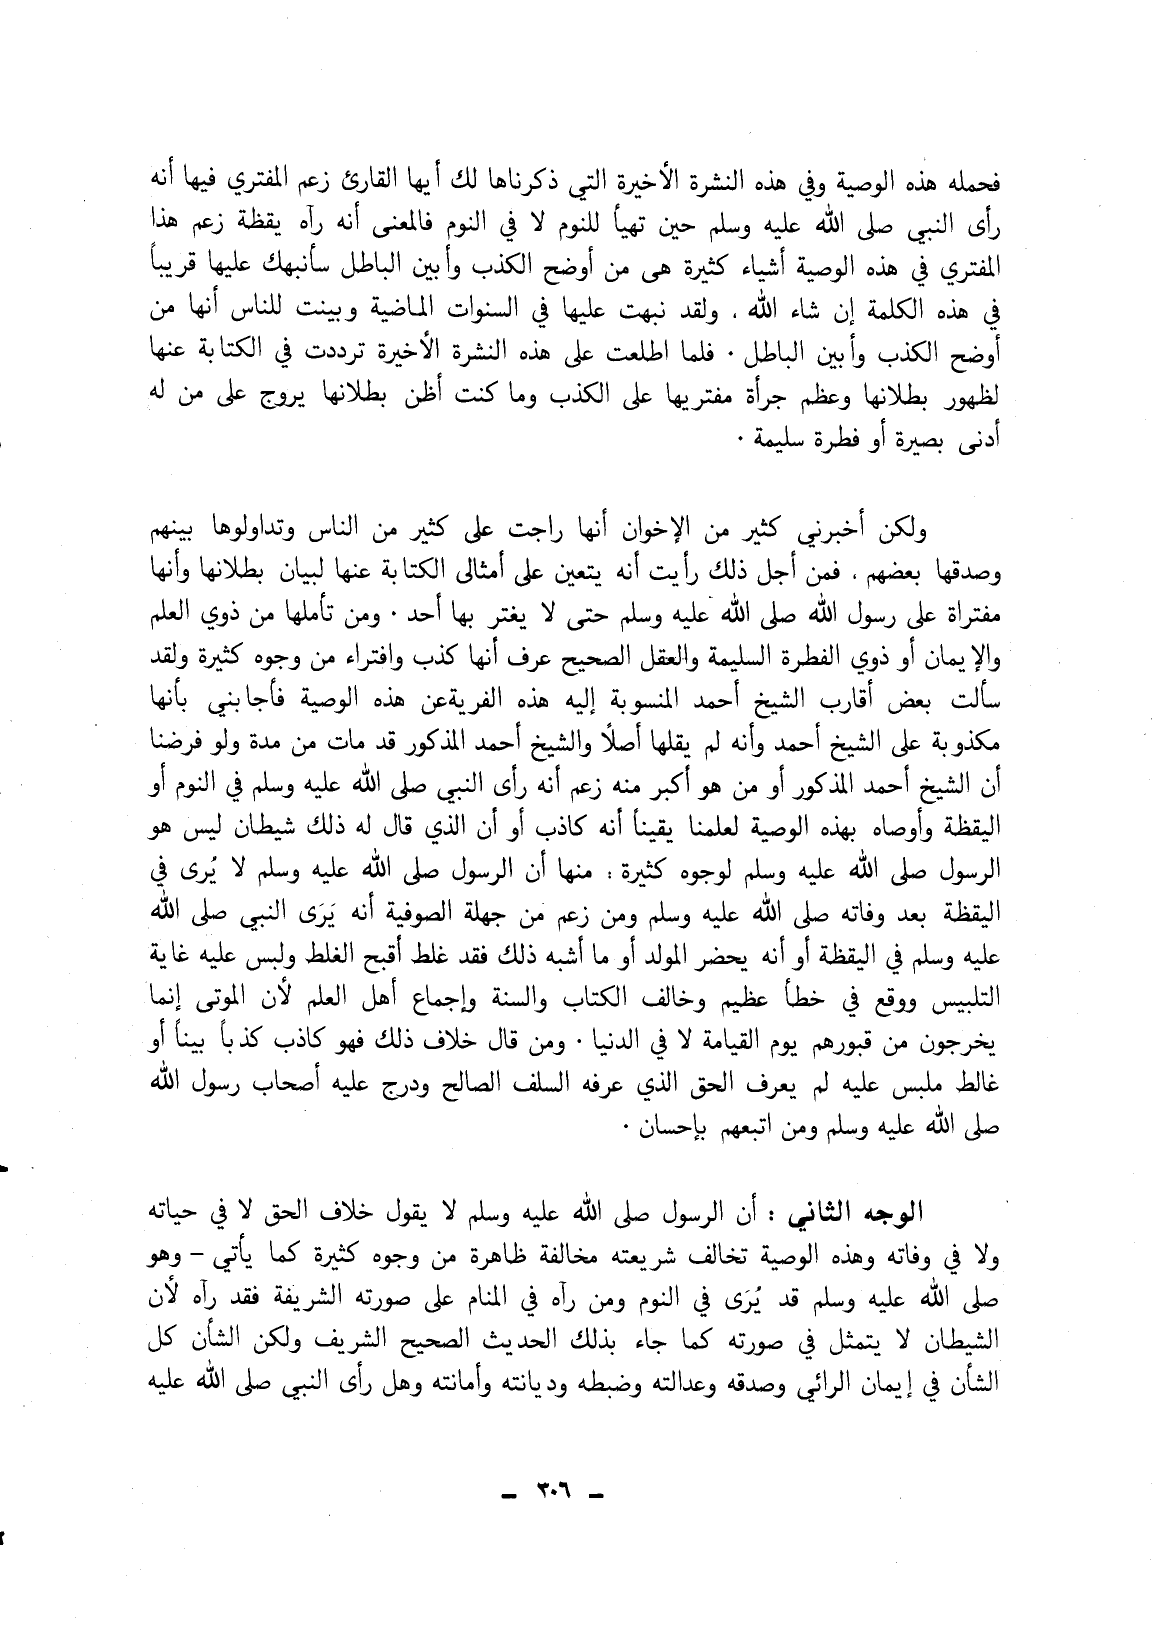 فحمله هذه الوصية وفي هذه النشرة الأخيرة التي ذكرناها لك أيها القارئ زعم المفتري فيها أنه
رأى النبي صلى الله عليه وسلم حين تهيأ للنوم لا في النوم فالمعنى أنه رآه يقظة زعم هذا
المفتري في هذه الوصية أشياء كثيرة هى من أوضح الكذب وأبين الباطل سأنبهك عليها قريباً
في هذه الكلمة إن شاء الله ، ولقد نبهت عليها في السنوات الماضية وبينت للناس أنها من
أوضح الكذب وأبين الباطل . فلما اطلعت على هذه النشرة الأخيرة ترددت في الكتابة عنها
لظهور بطلانها وعظم جرأة مفتريها على الكذب وما كنت أظن بطلانها يروج على من له
أدنى بصيرة أو فطرة سليمة .
ولكن أخبرني كثير من الإخوان أنها راجت على كثير من الناس وتداولوها بينهم
وصدقها بعضهم ، فمن أجل ذلك رأيت أنه يتعين على أمثالى الكتابة عنها لبيان بطلانها وأنها
مفتراة على رسول الله صلى الله عليه وسلم حتى لا يغتر بها أحد . ومن تأملها من ذوي العلم
والإيمان أو ذوي الفطرة السليمة والعقل الصحيح عرف أنها كذب وافتراء من وجوه كثيرة ولقد
سألت بعض أقارب الشيخ أحمد المنسوبة إليه هذه الفريةعن هذه الوصية فأجابني بأنها
مكذوبة على الشيخ أحمد وأنه لم يقلها أصلاً والشيخ أحمد المذكور قد مات من مدة ولو فرضنا
أن الشيخ أحمد المذكور أو من هو أكبر منه زعم أنه رأى النبي صلى الله عليه وسلم في النوم أو
اليقظة وأوصاه بهذه الوصية لعلمنا يقيناً أنه كاذب أو أن الذي قال له ذلك شيطان ليس هو
الرسول صلى الله عليه وسلم لوجوه كثيرة : منها أن الرسول صلى الله عليه وسلم لا يُرى في
اليقظة بعد وفاته صلى الله عليه وسلم ومن زعم من جهلة الصوفية أنه يَرَى النبي صلى الله
عليه وسلم في اليقظة أو أنه يحضر المولد أو ما أشبه ذلك فقد غلط أقبح الغلط ولبس عليه غاية
التلبيس ووقع في خطأ عظيم وخالف الكتاب والسنة وإجماع أهل العلم لأن الموتى إنما
يخرجون من قبورهم يوم القيامة لا في الدنيا . ومن قال خلاف ذلك فهو كاذب كذباً بيناً أو
غالط ملبس عليه لم يعرف الحق الذي عرفه السلف الصالح ودرج عليه أصحاب رسول الله
صلى الله عليه وسلم ومن اتبعهم بإحسان .
الوجه الثاني : أن الرسول صلى الله عليه وسلم لا يقول خلاف الحق لا في حياته
ولا في وفاته وهذه الوصية تخالف شريعته مخالفة ظاهرة من وجوه كثيرة كما يأتي – وهو
صلى الله عليه وسلم قد يُرَى في النوم ومن رآه في المنام على صورته الشريفة فقد رآه لأن
الشيطان لا يتمثل في صورته كما جاء بذلك الحديث الصحيح الشريف ولكن الشأن كل
الشأن في إيمان الرائي وصدقه وعدالته وضبطه وديانته وأمانته وهل رأى النبي صلى الله عليه
– ٣٠٦ –